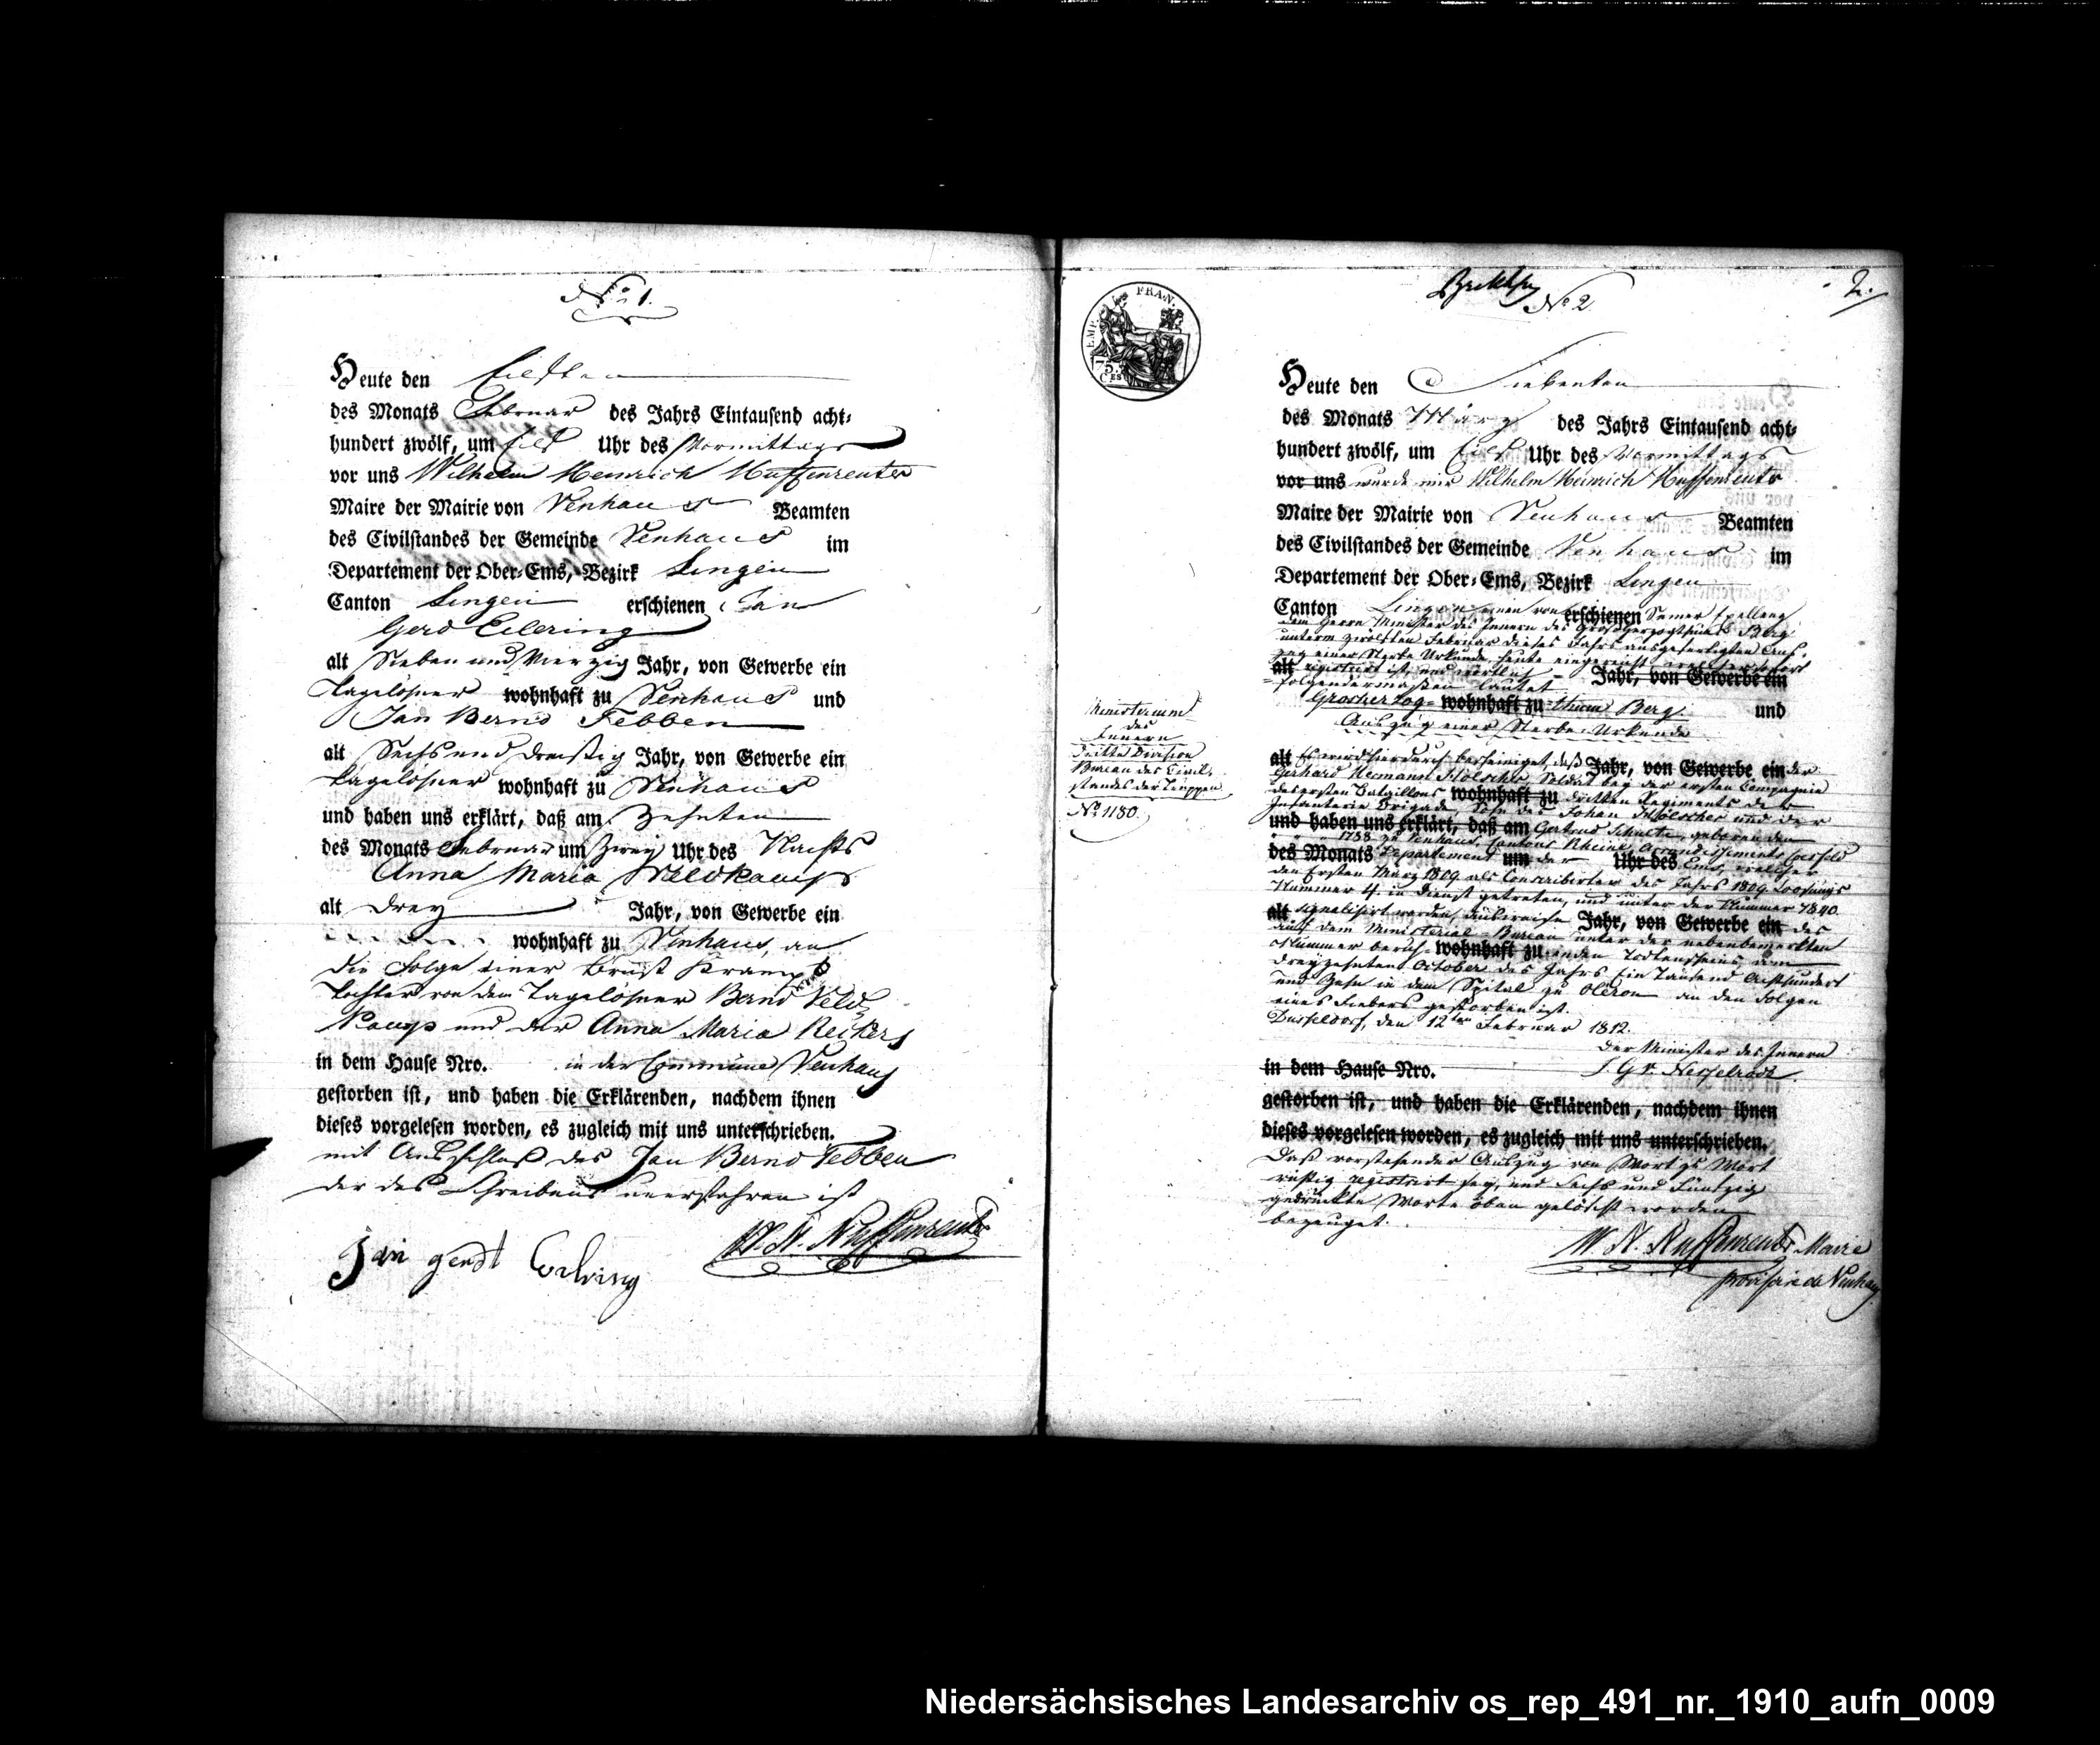 No. 1.
Heute den Eilften
des Monats Februar des Jahrs Eintausend acht-
hundert zwölf, um Eilf Uhr des Vormittags
vor uns Wilhelm Heinrich Huffenreuter
Maire der Mairie von Venhaus Beamten
des Civilstandes der Gemeinde Venhaus im
Departement der Ober-Ems, Bezirk Lingen
Canton Lingen erschienen Jan
Gerd Eilering
alt Sieben und Vierzig Jahr, von Gewerbe ein
Tagelöhner wohnhaft zu Venhaus und
Jan Bernd Tebben
alt Sechs und dreißig Jahr, von Gewerbe ein
Tagelöhner wohnhaft zu Venhaus
und haben uns erklärt, daß am Zehnten
des Monats Februar um Zwey Uhr des Nachts
Anna Maria Veldkamp
alt drey Jahr, von Gewerbe ein
wohnhaft zu Venhaus, an
die Folge einer Brust Krampf
Tochter von dem Tagelöhner Bernd Veld
Kamp und der Anna Maria Reckers
in dem Hause Nro. in der Commune Venhaus
gestorben ist, und haben die Erklärenden, nachdem ihnen
dieses vorgelesen worden, es zugleich mit uns unterschrieben.
mit Ausschluß des Jan Bernd Tebben
der des Schreibens unerfahren ist
Jan gerdt Eilring W. H. Huffenreuter
EMP. FRAN.
75.
CES
No 2
2.
Heute den Siebenten
des Monats März des Jahrs Eintausend acht-
hundert zwölf, um Eilf Uhr des Vormittags
vor uns wurde mir Wilhelm Heinrich Huffenreuter
Maire der Mairie von Venhaus Beamten
des Civilstandes der Gemeinde Venhaus im
Departement der Ober-Ems, Bezirk Lingen
Canton Lingen einen von erschienen Seiner Exellenz
dem Herrn Minister des Innern des Großherzogthums Berg
unterm zwölften Februar dieses Jahrs ausgefertigten Aus-
zug einer Sterbe Urkunde heute eingereicht, welcher sofort
alt registrirt ist und wörtlich Jahr, von Gewerbe ein
folgendermaßen lautet
Grosherzog- wohnhaft zu thum Berg. und
Auszug einer Sterbe-Urkunde
Ministerium
des
Innern
dritte Division
Bureau des Civil-
standes der Truppen
No. 1180.
alt Es wird hierdurch bescheiniget, daß Jahr, von Gewerbe ein der
Gerhard Hermann Hölscher, Soldat bey der ersten Compagnie
des ersten Bataillons wohnhaft zu dritten Regiments der
Infanterie Brigade, Sohn des Johan Hölscher und der
und haben uns erklärt, daß am Gertrud Schulte, geboren den
1788 zu Venhaus, Cantons Rheine, Arrondissements Coesfeld
des Monats Departement um der Uhr des Ems, welcher
den Ersten März 1809 als Conscribirter des Jahrs 1809 Loosungs
Nummer 4. in Dienst getreten, und unter der Nummer 1840
alt signalisirt worden, Jahr, von Gewerbe ein des
auf dem Ministerial-Bureau unter der nebenbemerkten
Nummer beruh- wohnhaft zu enden Todtenscheins, am
dreyzehnten October des Jahrs Ein Tausend Achthundert
und Zehn in dem Spital zu Oléron an den Folgen
eines Fiebers gestorben ist.
Düsseldorf, den 12ten Februar 1812.
Der Minister des Innern
in dem Hause Nro. J. Gr. Nesselrode
gestorben ist, und haben die Erklärenden, nachdem ihnen
dieses vorgelesen worden, es zugleich mit uns unterschrieben.
Daß vorstehender Auszug von Wort zu Wort
richtig registrirt sey, und sechs und Fünfzig
gedruckte Worte oben gelöscht worden
bezeuget.
W. H. Huffenreuter Maire
provisoire de Venhaus
Niedersächsisches Landesarchiv os_rep_491_nr._1910_aufn_0009